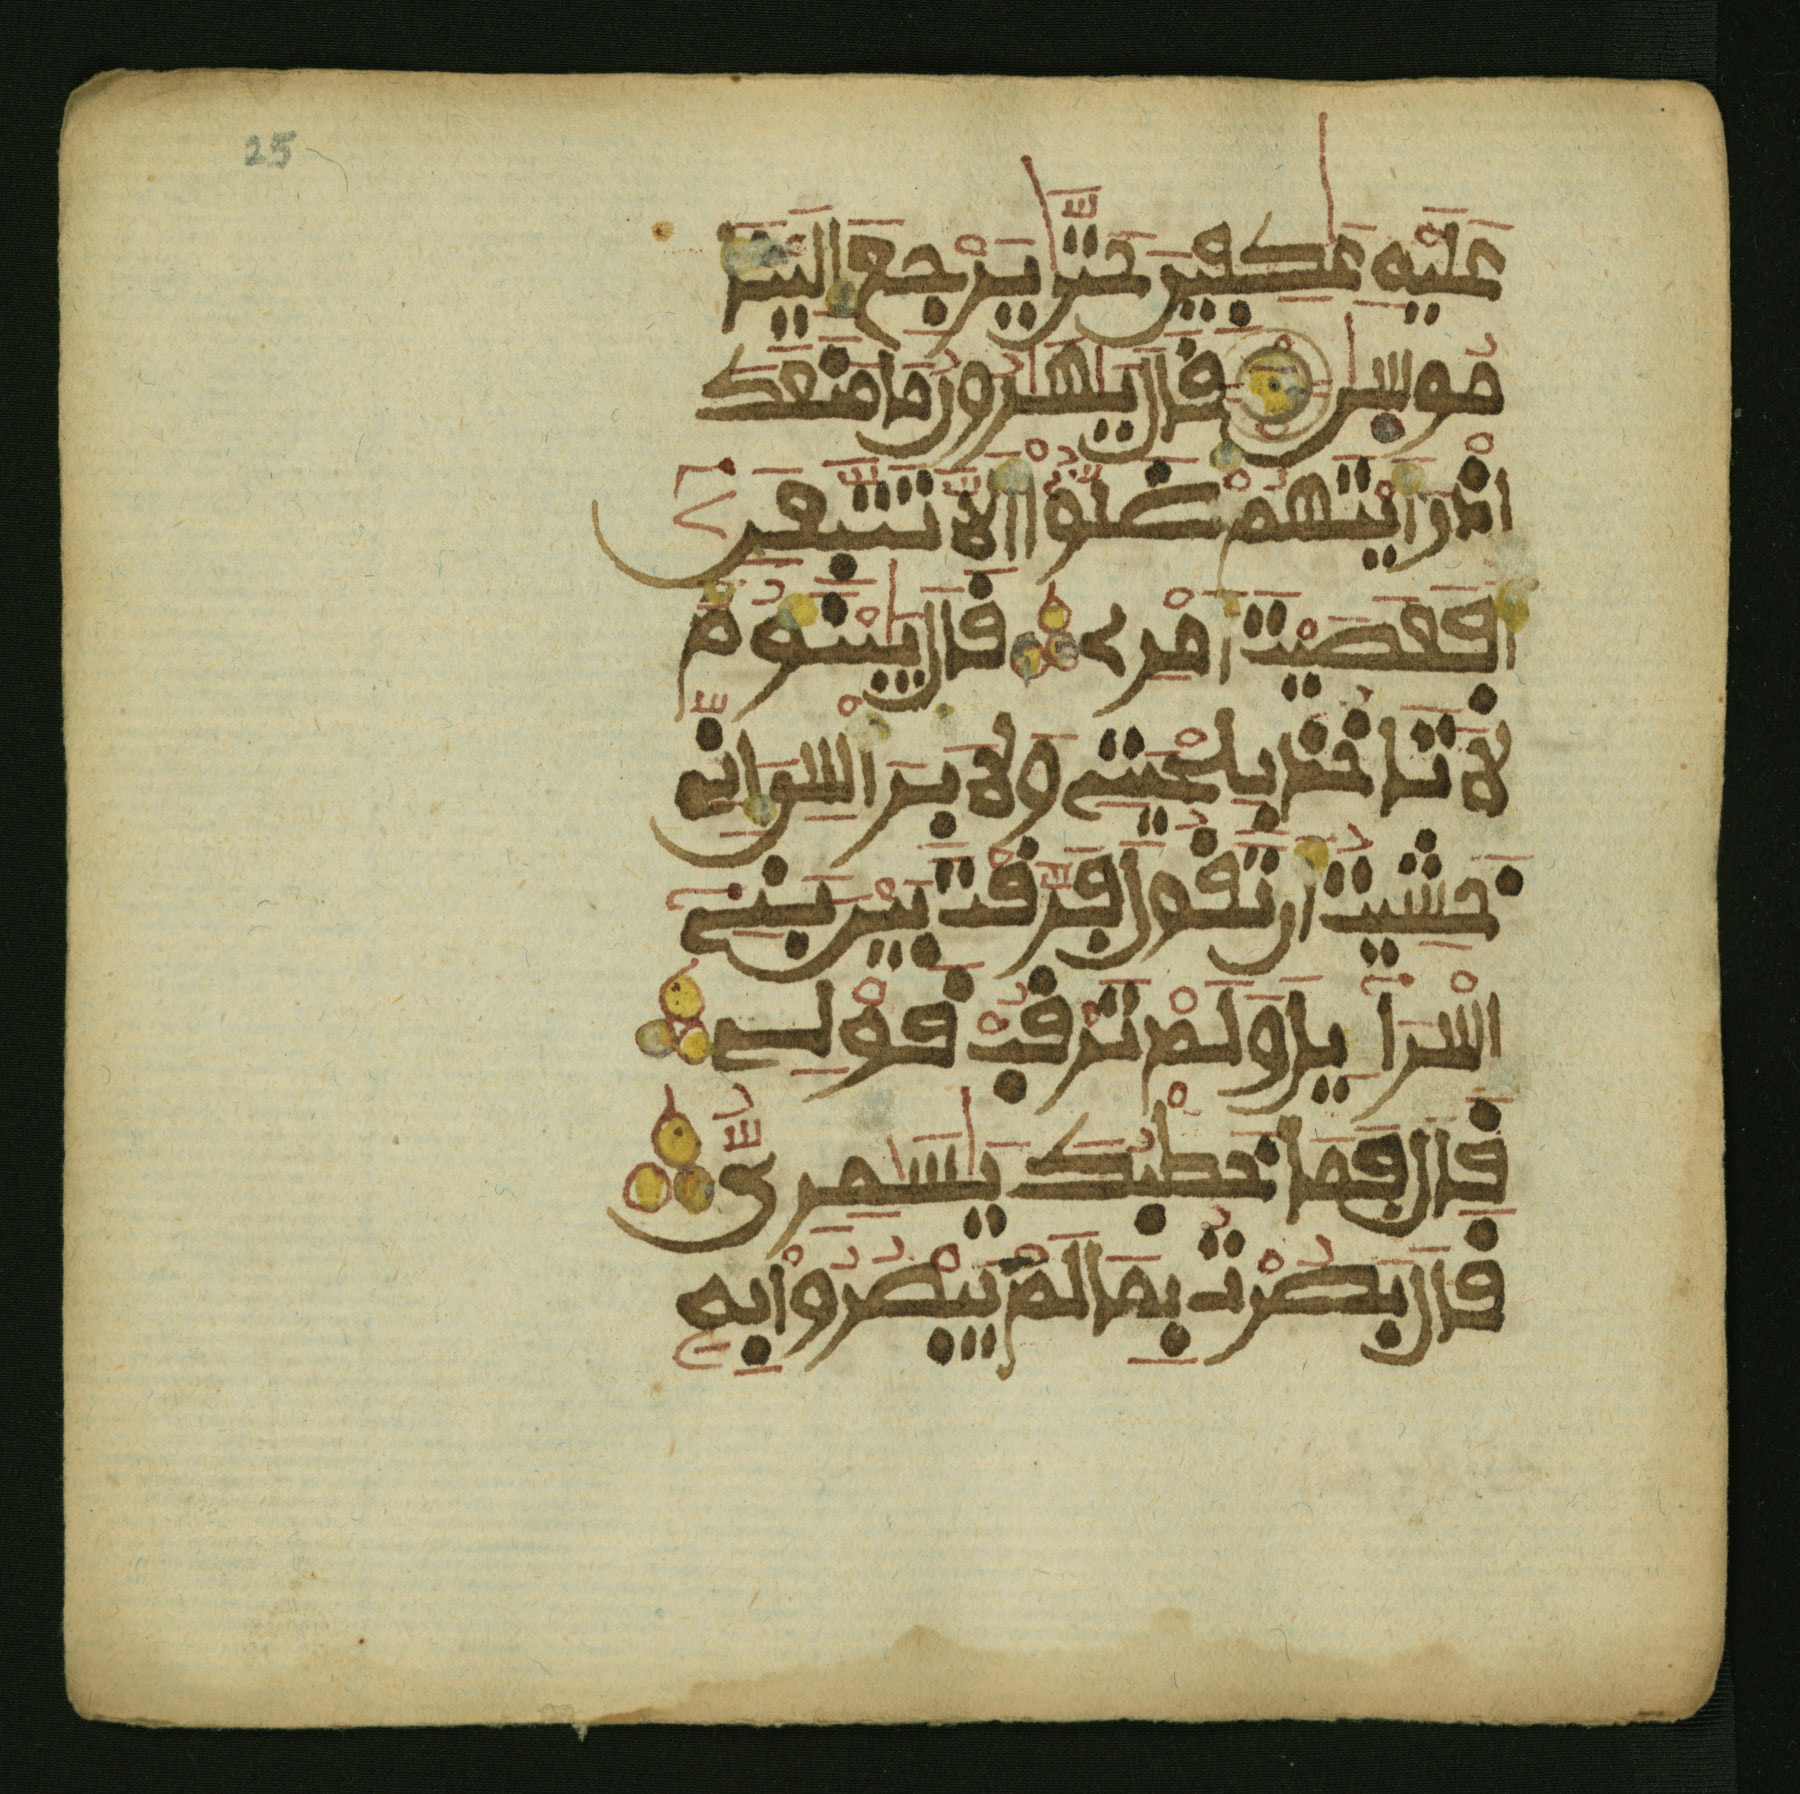 25
عَلَيْهِ عَٰكِفِينَ حَتَّىٰ يَرْجِعَ إِلَيْنَا
مُوسَىٰ قَالَ يَٰهَٰرُونُ مَا مَنَعَكَ
إِذْ رَأَيْتَهُمْ ضَلُّوا أَلَّا تَتَّبِعَنِ
أَفَعَصَيْتَ أَمْرِي قَالَ يَبْنَؤُمَّ
لَا تَأْخُذْ بِلِحْيَتِي وَلَا بِرَأْسِي إِنِّي
خَشِيتُ أَن تَقُولَ فَرَّقْتَ بَيْنَ بَنِي
إِسْرَآءِيلَ وَلَمْ تَرْقُبْ قَوْلِي
قَالَ فَمَا خَطْبُكَ يَٰسَٰمِرِيُّ
قَالَ بَصُرْتُ بِمَا لَمْ يَبْصُرُوا بِهِ